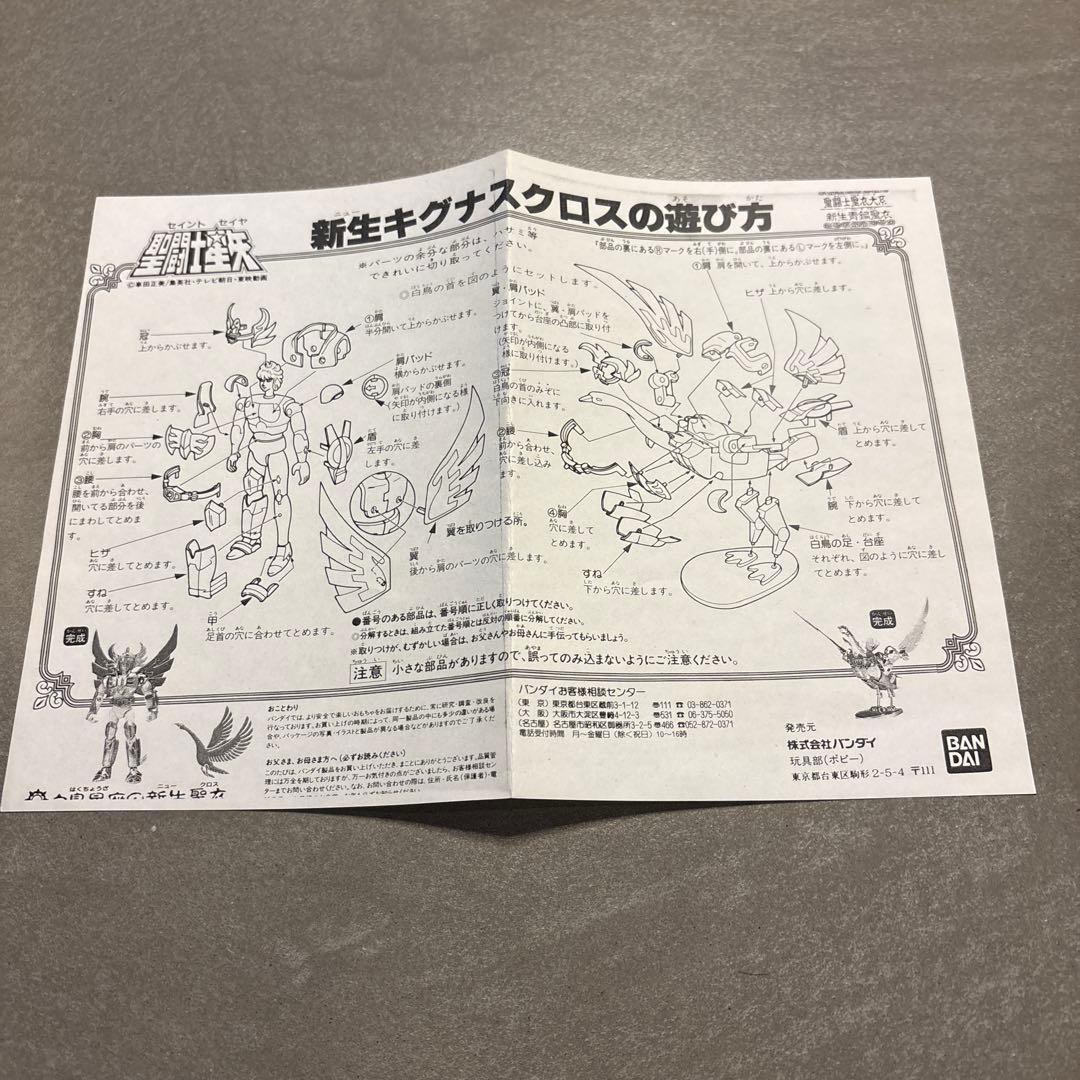 新生キグナスクロスの遊び方
ニュー
あそ
かた
セイント セイヤ
聖闘士星矢
©車田正美/集英社・テレビ朝日・東映動画
聖闘士聖衣大系
新生青銅聖衣
※パーツの余分な部分は、ハサミ等
できれいに切り取ってください。
『部品の裏にあるⓇマークを右(手)側に。部品の裏にあるⓁマークを左側に。』
◎白鳥の首を図のようにセットします。
冠
上からかぶせます。
①肩
半分開いて上からかぶせます。
肩パッド
横からかぶせます。
肩パッドの裏側
(矢印が内側になる様
に取り付けます。)
腕
右手の穴に差します。
②胸
前から肩のパーツの
穴に差します。
盾
左手の穴に差
します。
③腰
腰を前から合わせ、
開いてる部分を後
にまわしてとめま
す。
ヒザ
穴に差してとめます。
すね
穴に差してとめます。
甲
足首の穴に合わせてとめます。
翼を取りつける所。
翼
後から肩のパーツの穴に差します。
翼・肩パッド
ジョイントに、翼・肩パッドを
つけてから台座の凸部に取り付
けます。
(矢印が内側になる
様に取り付けます。)
①肩 肩を開いて、上からかぶせます。
ヒザ 上から穴に差します。
③冠
白鳥の首のみぞに
下向きに入れます。
②腰
前から合わせ、
穴に差し込み
ます。
④胸
穴に差して
とめます。
すね
下から穴に差します。
盾 上から穴に差して
とめます。
腕 下から穴に差して
とめます。
白鳥の足・台座
それぞれ、図のように穴に差し
てとめます。
●番号のある部品は、番号順に正しく取りつけてください。
◎分解するときは、組み立てた番号順とは反対の順番に分解してください。
※取りつけが、むずかしい場合は、お父さんやお母さんに手伝ってもらいましょう。
注意 小さな部品がありますので、誤ってのみ込まないようにご注意ください。
完成
完成
おことわり
バンダイでは、より安全で楽しいおもちゃをお届けするために、常に研究・調査・改良を
行なっております。お買い上げの時期によって、同一製品の中にも多少の違いがある場
合や、パッケージの写真・イラストと製品が異なる場合などがありますのでご了承くだ
さい。
お父さま、お母さま方へ(必ずお読みください)
このたびは、バンダイ製品をお買い上げいただき、まことにありがとうございます。品質管
理には万全を期しておりますが、万一お気付きの点がございましたら、お客様相談セン
ターまでお問い合わせください。なお、お問い合わせの際は、住所・氏名(保護者)・電
はくちょうざ ニュー クロス
白鳥星座の新生聖衣
バンダイお客様相談センター
(東 京)東京都台東区蔵前3-1-12 〒111 ☎03-862-0371
(大 阪)大阪市大淀区豊崎4-12-3 〒531 ☎06-375-5050
(名古屋)名古屋市昭和区御器所3-2-5 〒466 ☎052-872-0371
電話受付時間 月〜金曜日(除く祝日)10〜16時
発売元
株式会社バンダイ
玩具部(ポピー)
東京都台東区駒形2-5-4 〒111
BAN
DAI